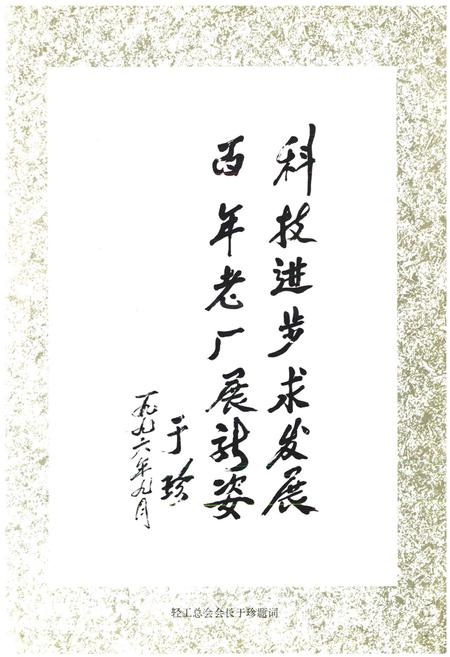 科技进步求发展
百年老厂展新姿
于珍
一九九六年九月
轻工总会会长于珍题词